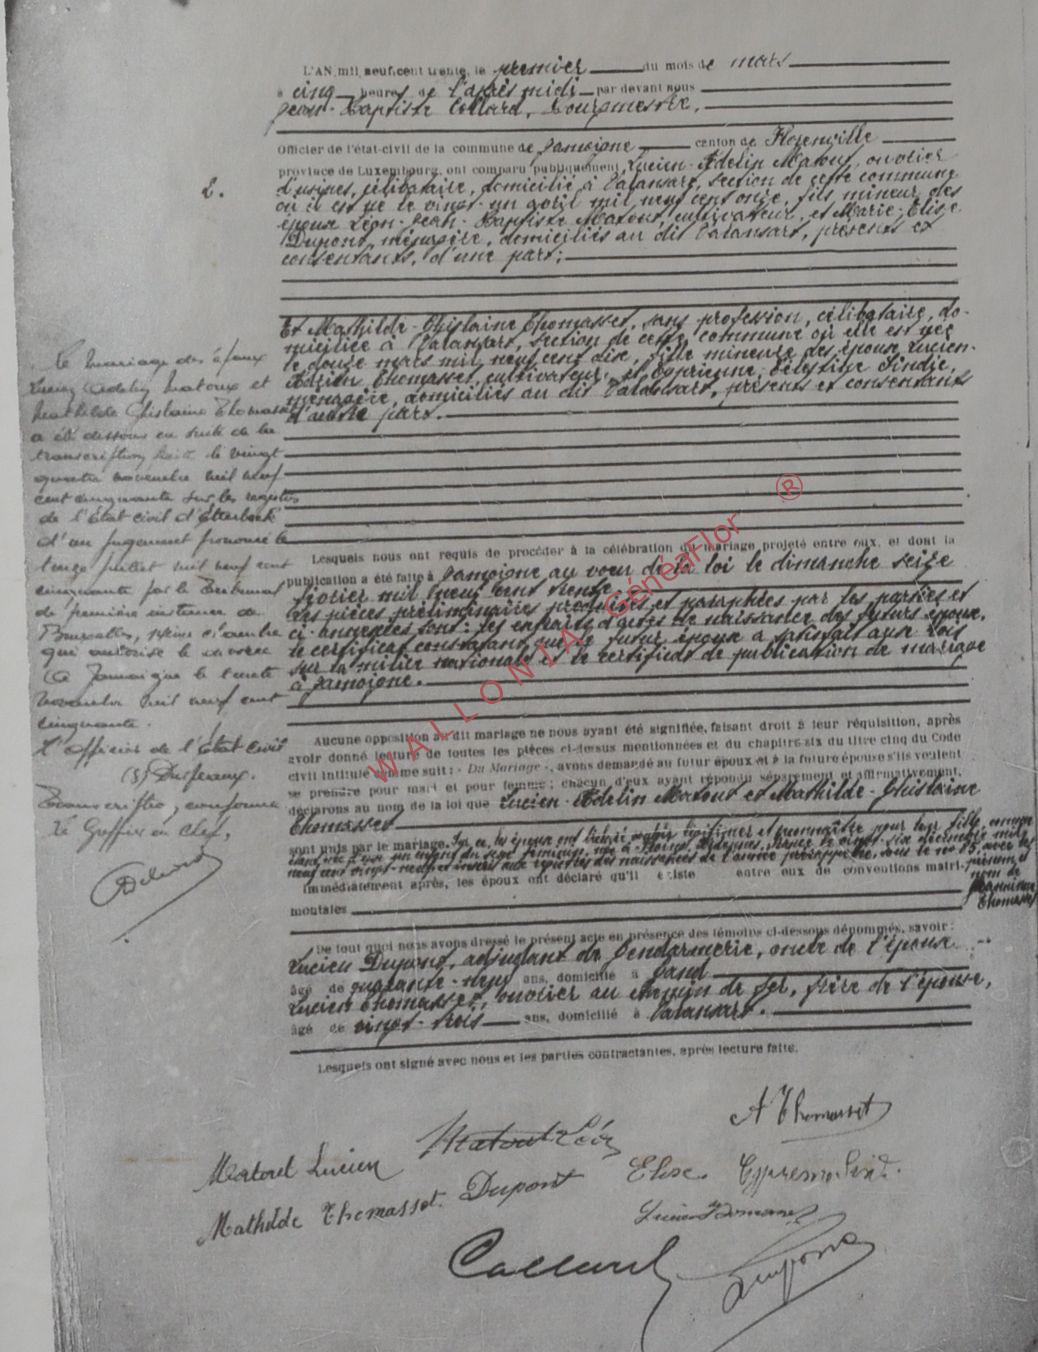 L'AN mil neuf cent trente, le premier du mois de mars
à cinq heures de l'après midi par devant nous
Jean-Baptiste Collard, Bourgmestre,
Officier de l'état-civil de la commune de Jamoigne canton de Florenville
province de Luxembourg, ont comparu publiquement Lucien-Adelin Matout, ouvrier
2.
d'usines, célibataire, domicilié à Valansart, section de cette commune
où il est né le vingt-un avril mil neuf cent onze, fils mineur des
époux Léon-Jean-Baptiste Matout, cultivateur, et Marie-Elise
Dupont, ménagère, domiciliés au dit Valansart, présents et
consentants, d'une part;
Et Mathilde-Ghislaine Thomasset, sans profession, célibataire, do-
miciliée à Valansart, section de cette commune où elle est née
le douze mars mil neuf cent dix, fille mineure des époux Lucien-
Adrien Thomasset, cultivateur, et Cyprienne Célestine Sindic,
ménagère, domiciliés au dit Valansart, présents et consentants
d'autre part.
Le mariage des époux
Lucien Adelin Matoux et
Mathilde Ghislaine Thomasset
a été dissous en suite de la
transcription faite le vingt
quatre novembre mil neuf
cent cinquante sur les registres
de l'État civil d'Etterbeek
d'un jugement prononcé le
onze juillet mil neuf cent
cinquante par le Tribunal
de première instance de
Bruxelles,
qui autorise le divorce
A Jamoigne le trente
novembre mil neuf cent
cinquante.
L'Officier de l'État Civil
(s)
Transcription conforme
Le Greffier en Chef,
Lesquels nous ont requis de procéder à la célébration du mariage projeté entre eux, et dont la
publication a été faite à Jamoigne au vœu de la loi le dimanche seize
février mil neuf cent trente
Les pièces préliminaires produites et paraphées par les parties et
ci-annexées sont: les extraits d'actes de naissance des futurs époux,
le certificat constatant que le futur époux a satisfait aux lois
sur la milice nationale et le certificat de publication de mariage
à Jamoigne.
Aucune opposition au dit mariage ne nous ayant été signifiée, faisant droit à leur réquisition, après
avoir donné lecture de toutes les pièces ci-dessus mentionnées et du chapitre six du titre cinq du Code
civil intitulé comme suit: « Du Mariage », avons demandé au futur époux et à la future épouse s'ils veulent
se prendre pour mari et pour femme; chacun d'eux ayant répondu séparément et affirmativement,
déclarons au nom de la loi que Lucien-Adelin Matout et Mathilde-Ghislaine
Thomasset
sont unis par le mariage. les époux ont déclaré légitimer et reconnaître pour leur fille,
du sexe féminin, née à le vingt-six décembre mil
neuf cent vingt-neuf et inscrit aux registres des naissances de l'année précitée, sous le no 15, avec les
prénom et
nom de
Thomasset
Immédiatement après, les époux ont déclaré qu'il existe entre eux de conventions matri-
montales
De tout quoi nous avons dressé le présent acte en présence des témoins ci-dessous dénommés, savoir:
Lucien Dupont, adjudant de Gendarmerie, oncle de l'époux
âgé de quarante-neuf ans, domicilié à Gand
Lucien Thomasset, ouvrier au chemin de fer, frère de l'épouse,
âgé de vingt-trois ans, domicilié à Valansart.
Lesquels ont signé avec nous et les parties contractantes, après lecture faite.
A Thomasset
Matout Léon
Matout Lucien
Dupont Elise
Mathilde Thomasset
Lucien Thomasset
Collard
Dupont
WALLONIA GénéaFlor ®